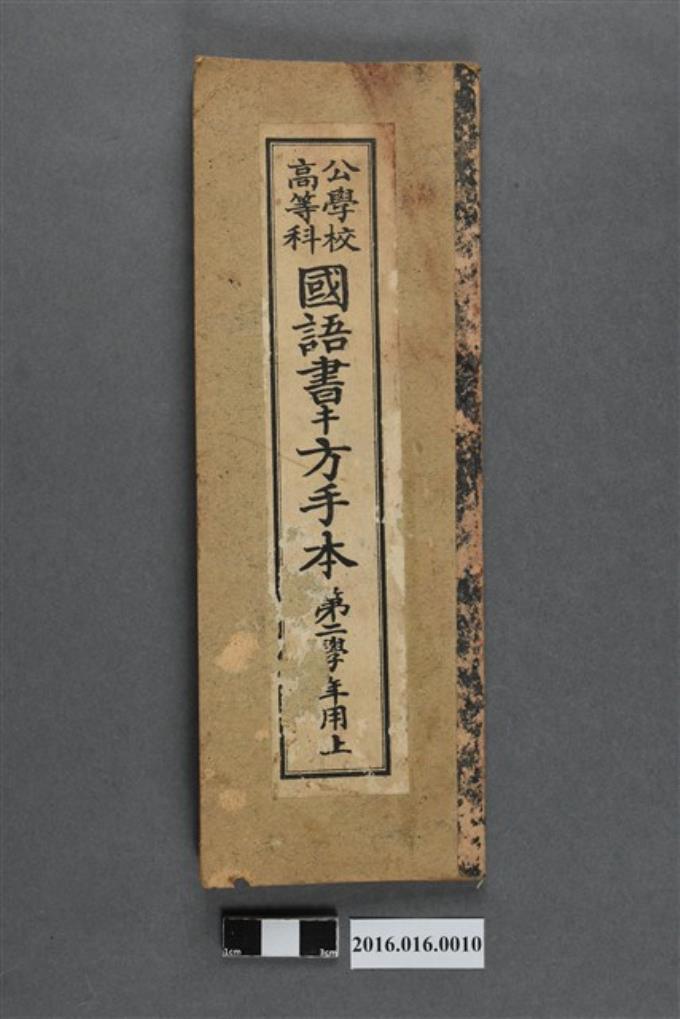 公學校
高等科
國語書キ方手本 第二學年用上
1cm 3cm
2016.016.0010